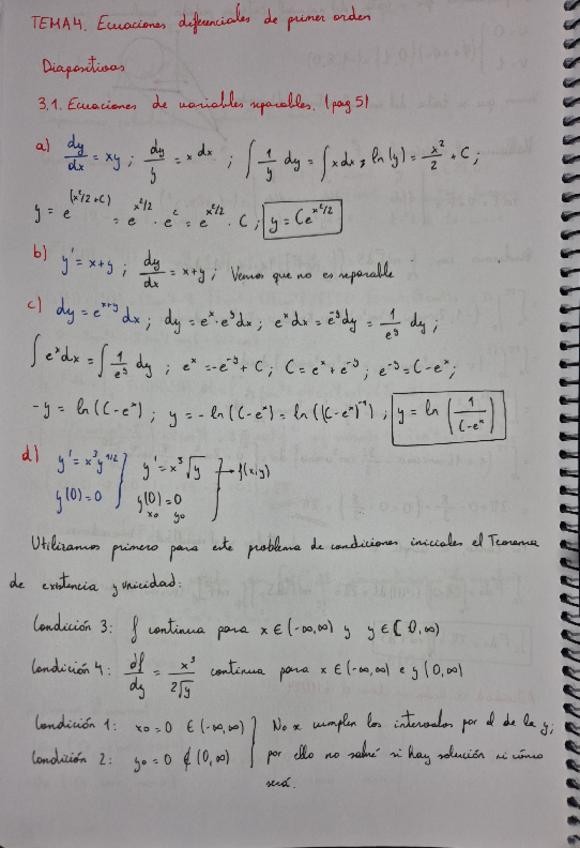 TEMA 4. Ecuaciones diferenciales de primer orden
Diapositivas
3.1. Ecuaciones de variables separables. (pag 5)
a) dy/dx = xy ; dy/y = x dx ; ∫ 1/y dy = ∫ x dx ; ln(y) = x²/2 + C ;
y = e^(x²/2 + C) = e^(x²/2) · e^C = e^(x²/2) · C ; y = Ce^(x²/2)
b) y' = x+y ; dy/dx = x+y ; Vemos que no es separable
c) dy = e^(x+y) dx ; dy = e^x · e^y dx ; e^x dx = e^(-y) dy = 1/e^y dy ;
∫ e^x dx = ∫ 1/e^y dy ; e^x = -e^(-y) + C ; C = e^x + e^(-y) ; e^(-y) = C - e^x ;
-y = ln(C-e^x) ; y = -ln(C-e^x) = ln((C-e^x)^(-1)) ; y = ln(1/(C-e^x))
d) y' = x³y^(1/2) } y' = x³√y } → f(x,y)
y(0) = 0 } y(0) = 0 }
x0 y0
Utilizamos primero para este problema de condiciones iniciales el Teorema
de existencia y unicidad:
Condición 3: f continua para x ∈ (-∞,∞) y y ∈ [0,∞)
Condición 4: df/dy = x³/2√y continua para x ∈ (-∞,∞) e y (0,∞)
Condición 1: x0 = 0 ∈ (-∞,∞) } No se cumplen los intervalos por el de la y;
Condición 2: y0 = 0 ∉ (0,∞) } por ello no sabré si hay solución ni cómo
será.